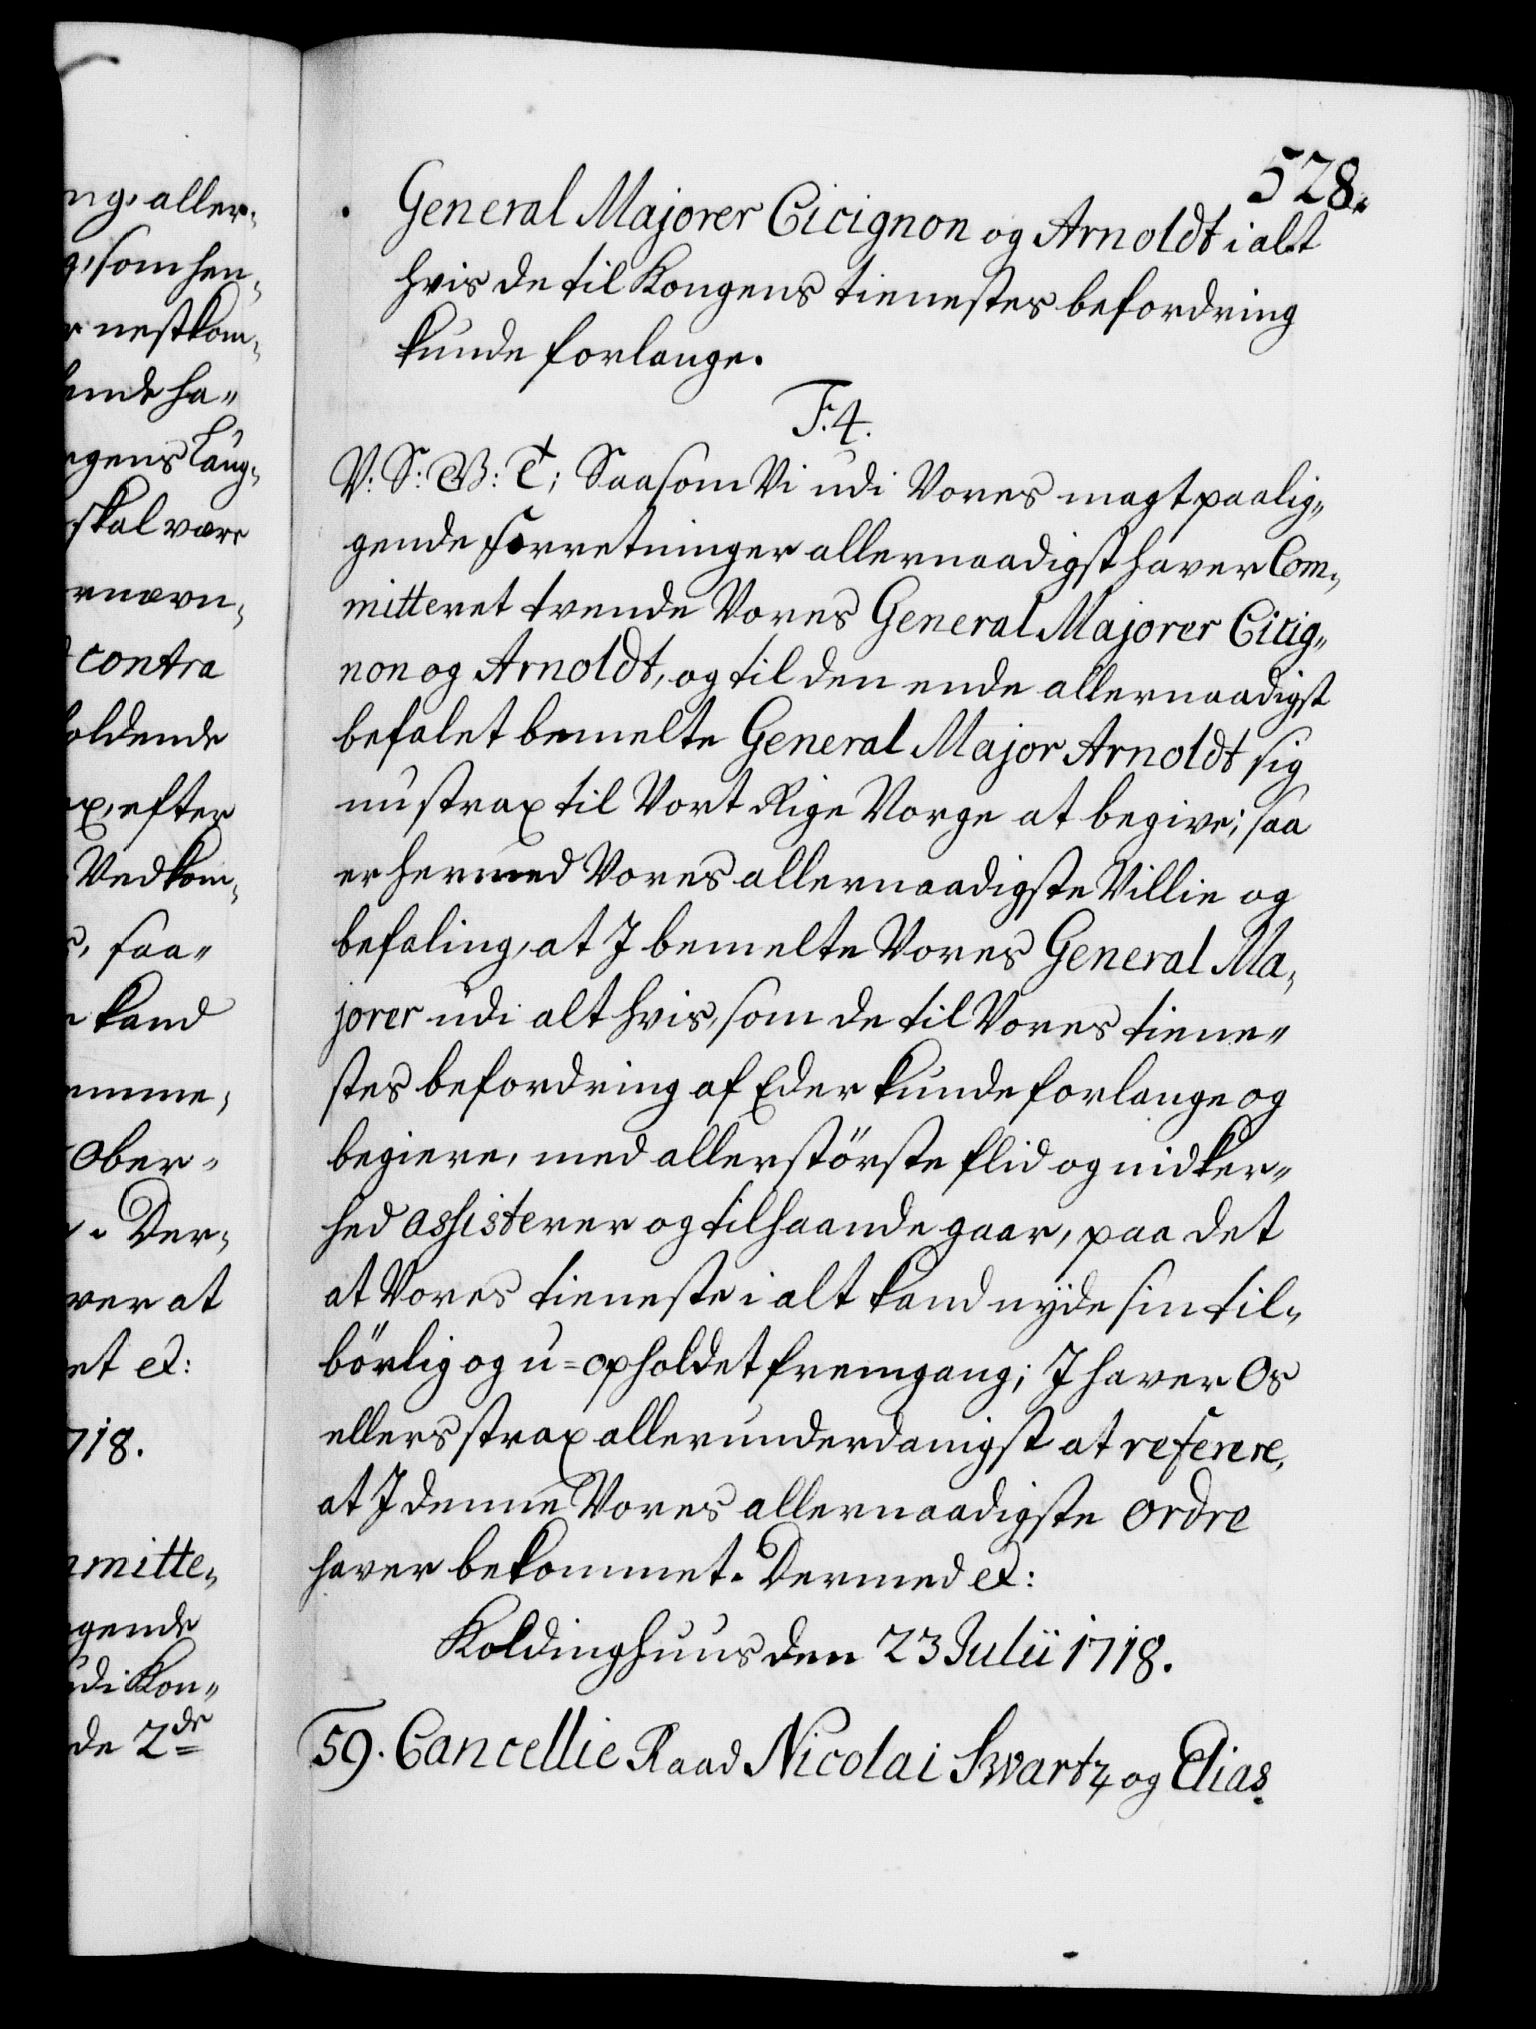 ng, aller-
g, som hen-
r nestkom-
ende ha-
egens Laug-
skal være
rnævn-
contra
oldende
x, efter
Vedkom-
saa-
kand
emme-
Ober-
Der-
ver at
et etc:
718.
mitte-
gende
udi Kon-
de 2de
528.
General Majorer Cicignon og Arnoldt i alt
hvis de til Kongens tienestes befordring
kunde forlange.
F. 4.
V: S: G: T; Saasom Vi udi Vores magtpaalig-
gende Forretninger allernaadigst haver Com-
mitteret tvende Vores General Majorer Cicig-
non og Arnoldt, og til den ende allernaadigst
befalet bemelte General Major Arnoldt sig
nu strax til Vort Rige Norge at begive; saa
er hermed Vores allernaadigste Villie og
befaling, at I bemelte Vores General Ma-
jorer udi alt hvis, som de til Vores tiene-
stes befordring af Eder kunde forlange og
begiere, med allerstörste flid og nidker-
hed assisterer og tilhaande gaar, paa det
at Vores tieneste i alt kand nyde sin til-
börlig og u-opholdet fremgang; I haver Os
ellers strax allerunderdanigst at referere,
at I denne Vores allernaadigste ordre
haver bekommet. Dermed etc:
Koldinghuus den 23 Julii 1718.
59. Cancellie Raad Nicolai Swartz og Elias